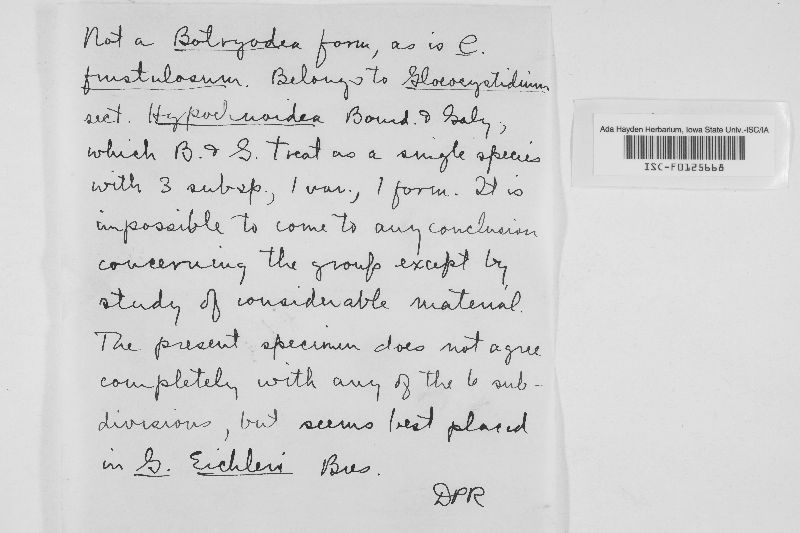 Not a Botryodea form, as is C.
frustulosum. Belongs to Gloeocystidium
sect. Hypochnoidea Bourd. & Galz.,
which B. & G. treat as a single species
with 3 subsp., 1 var., 1 form. It is
impossible to come to any conclusion
concerning the group except by
study of considerable material.
The present specimen does not agree
completely with any of the 6 sub-
divisions, but seems best placed
in G. Eichleri Bres.
DPR
Ada Hayden Herbarium, Iowa State Univ.-ISC/IA
ISC-F0125668